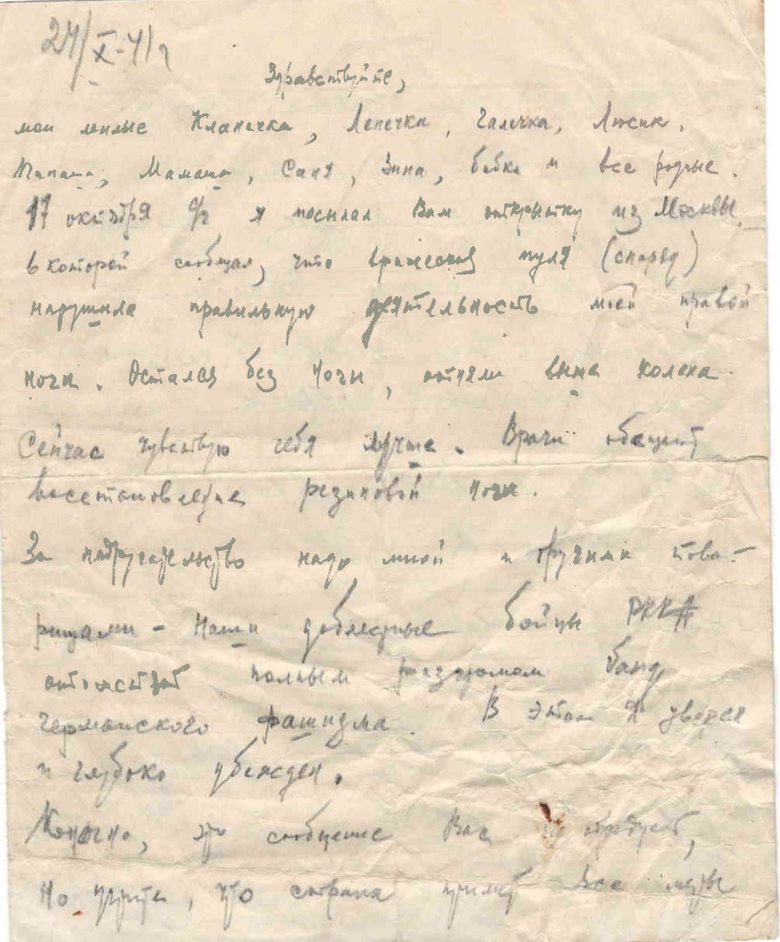 24/X-41г
Здравствуйте,
мои милые Клапечка, Лепечка, Галечка, Люсик,
Папаша, Мамаша, Саня, Зина, бабка и все родные.
17 октября с/г я посылал Вам открытку из Москвы,
в которой сообщал, что вражеская пуля (снаряд)
нарушила правильную деятельность моей правой
ноги. Остался без ноги, отняли выше колена.
Сейчас чувствую себя лучше. Врачи обещают
восстановление резиновой ноги.
За надругательство надо мной и другими това-
рищами - наши доблестные бойцы РККА
отомстят полным разгромом банд
германского фашизма. В этом я уверен
и глубоко убежден.
Конечно, это сообщение Вас не обрадует,
но учтите, что страна примет все меры